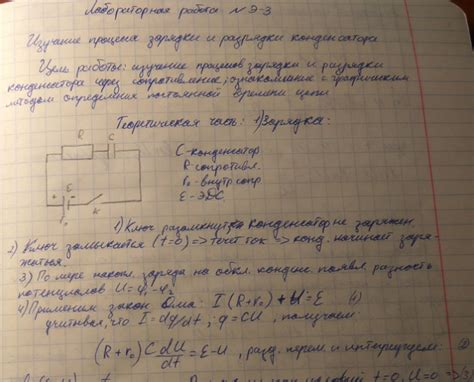 Лабораторная работа №Э-3
Изучение процесса зарядки и разрядки конденсатора
Цель работы: изучение процессов зарядки и разрядки
конденсатора через сопротивление; ознакомление с графическим
методом определения постоянной времени цепи
Теоретическая часть: 1) Зарядка:
R C
C-конденсатор
R-сопротивл.
r₀-внутр сопр.
ε-ЭДС
+ ε -
r₀ K
1) Ключ разомкнут конденсатор не заряжен
2) Ключ замыкается (t=0) => течет ток => конд. начинает заря-
жаться
3) По мере накопл. заряда на обкл. конденс появл. разность
потенциалов U=φ₁-φ₂
4) Применим закон Ома: I(R+r₀)+U=ε (1)
учитывая, что I=dq/dt; q=CU, получаем:
(R+r₀) C dU/dt = ε-U, разд. перем и интегрируем: (2)
t=0, U=0 =>